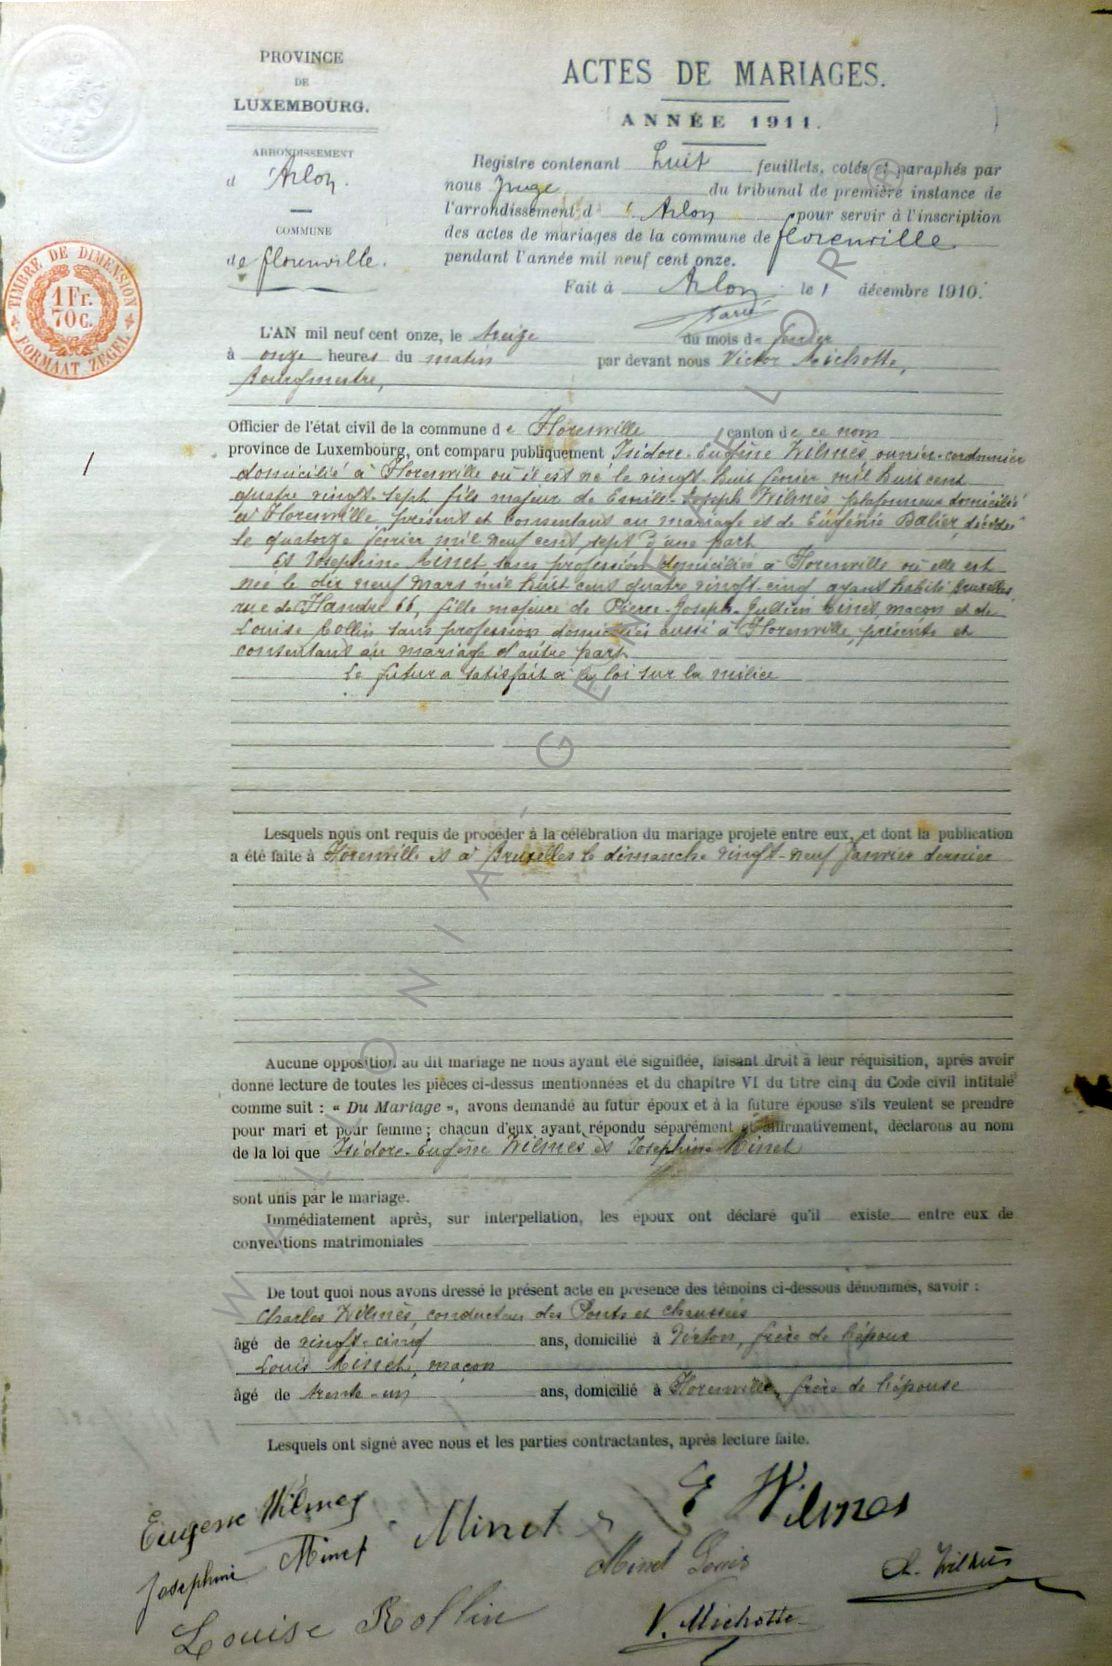 PROVINCE
DE
LUXEMBOURG.
ARRONDISSEMENT
d'Arlon.
COMMUNE
de florenville.
TIMBRE DE DIMENSION
1 Fr.
70 C.
FORMAAT ZEGEL
ACTES DE MARIAGES.
ANNÉE 1911.
Registre contenant huit feuillets, cotés et paraphés par
nous Juge du tribunal de première instance de
l'arrondissement d'Arlon pour servir à l'inscription
des actes de mariages de la commune de florenville
pendant l'année mil neuf cent onze.
Fait à Arlon le 1 décembre 1910.
L'AN mil neuf cent onze, le treize du mois de février
à onze heures du matin par devant nous Victor Michotte,
bourgmestre,
Officier de l'état civil de la commune de Florenville canton de ce nom
1
province de Luxembourg, ont comparu publiquement Isidore-Eugène Wilmès, ouvrier-cordonnier
domicilié à Florenville où il est né le vingt-huit février mil huit cent
quatre vingt-sept fils majeur de Emile-Joseph Wilmès, plafonneur domicilié
à Florenville, présent et consentant au mariage et de Eugénie Balier, décédée
le quatorze février mil neuf cent sept d'une part
Et Joséphine Minet sans profession domiciliée à Florenville où elle est
née le dix neuf mars mil huit cent quatre vingt-cinq ayant habité Bruxelles
rue de Flandre 66, fille majeure de Pierre-Joseph-Jullien Minet, maçon et de
Louise Rollin sans profession domiciliés aussi à Florenville, présents et
consentant au mariage d'autre part
Le futur a satisfait à la loi sur la milice
Lesquels nous ont requis de procéder à la célébration du mariage projeté entre eux, et dont la publication
a été faite à Florenville et à Bruxelles le dimanche vingt-neuf janvier dernier
Aucune opposition au dit mariage ne nous ayant été signifiée, faisant droit à leur réquisition, après avoir
donné lecture de toutes les pièces ci-dessus mentionnées et du chapitre VI du titre cinq du Code civil intitulé
comme suit : « Du Mariage », avons demandé au futur époux et à la future épouse s'ils veulent se prendre
pour mari et pour femme ; chacun d'eux ayant répondu séparément et affirmativement, déclarons au nom
de la loi que Isidore-Eugène Wilmès et Joséphine Minet
sont unis par le mariage.
Immédiatement après, sur interpellation, les époux ont déclaré qu'il existe entre eux de
conventions matrimoniales
De tout quoi nous avons dressé le présent acte en présence des témoins ci-dessous dénommés, savoir :
Charles Wilmès, conducteur des Ponts et chaussées
âgé de vingt-cinq ans, domicilié à Virton, frère de l'époux
Louis Minet, maçon
âgé de trente-un ans, domicilié à Florenville, frère de l'épouse
Lesquels ont signé avec nous et les parties contractantes, après lecture faite.
Eugène Wilmes
Joséphine Minet
Minet
E Wilmes
Minet Louis
Ch. Wilmès
Louise Rollin
V. Michotte
WALLONIA-GENWEB FLOR